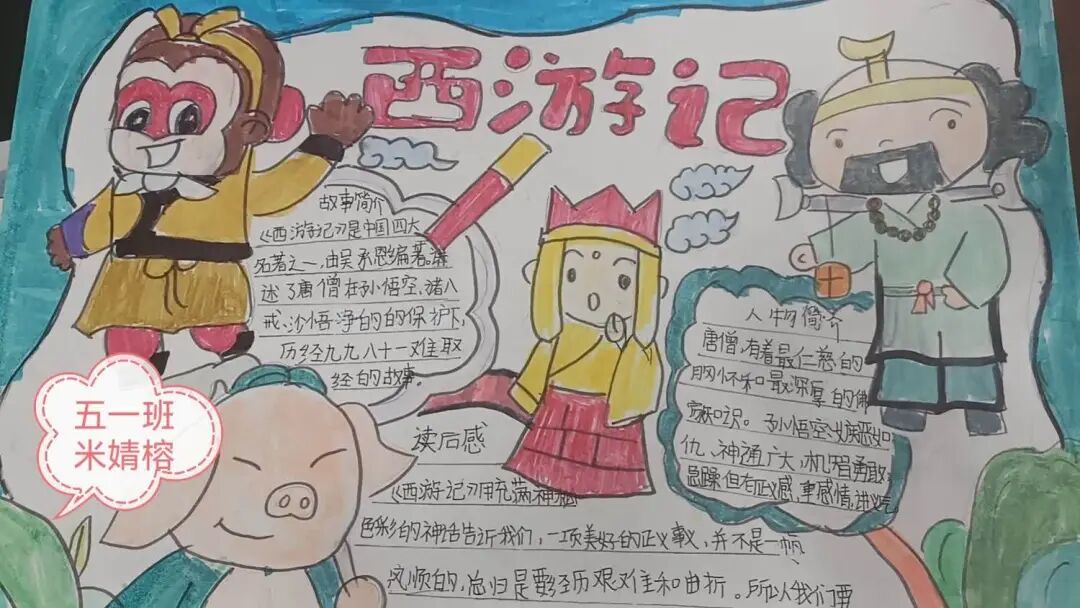 西游记
故事简介
《西游记》是中国四大
名著之一,由吴承恩编著。讲
述了唐僧在孙悟空、猪八
戒、沙悟净的的保护下,
历经九九八十一难取
经的故事。
人物简介
唐僧,有着最仁慈的
胸怀和最深厚的佛
家知识。孙悟空、嫉恶如
仇、神通广大、机智勇敢、
急躁但有正义感,重感情,讲义气
读后感
《西游记》用充满神秘
色彩的神话告訴我们,一项美好的正义事义,并不是一帆
风顺的,总归是要经历艰难和曲折。所以我们要
五一班
米婧榕